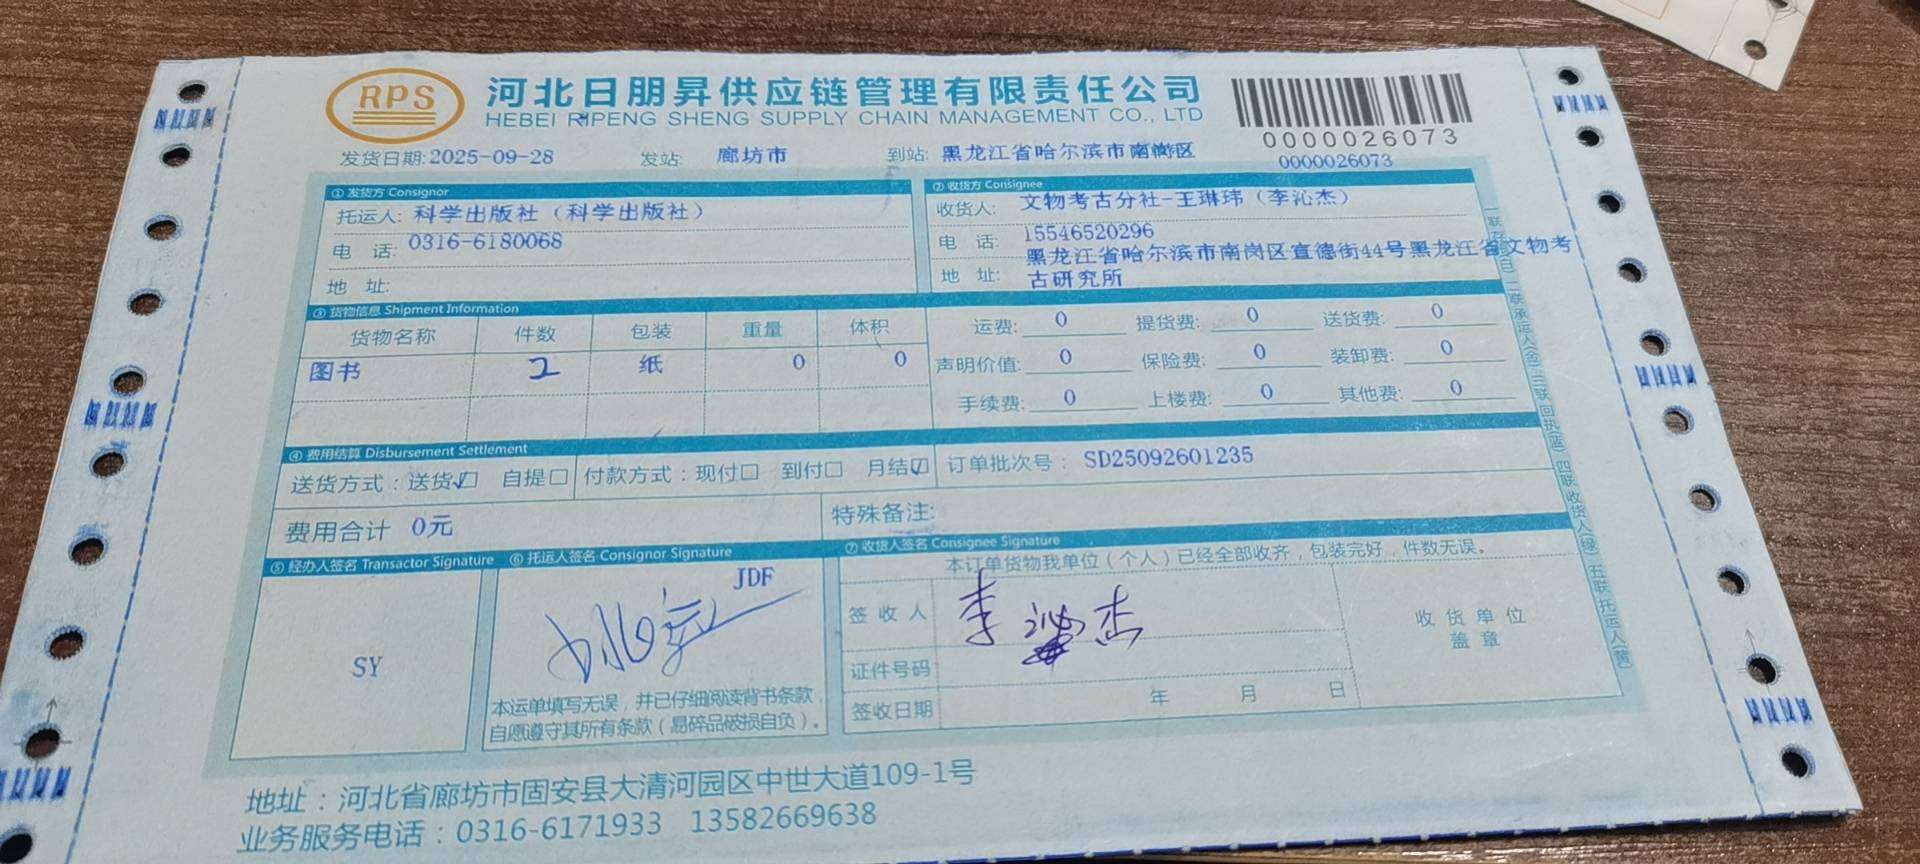 RPS
河北日朋昇供应链管理有限责任公司
HEBEI RIPENG SHENG SUPPLY CHAIN MANAGEMENT CO., LTD
0000026073
0000026073
发货日期:2025-09-28 发站: 廊坊市 到站: 黑龙江省哈尔滨市南岗区
① 发货方 Consignor
托运人: 科学出版社（科学出版社）
电 话: 0316-6180068
地 址:
② 收货方 Consignee
收货人: 文物考古分社-王琳玮（李沁杰）
电 话: 15546520296
地 址: 黑龙江省哈尔滨市南岗区宣德街44号黑龙江省文物考
古研究所
③ 货物信息 Shipment Information
货物名称 件数 包装 重量 体积
图书 2 纸 0 0
运费: 0 提货费: 0 送货费: 0
声明价值: 0 保险费: 0 装卸费: 0
手续费: 0 上楼费: 0 其他费: 0
④ 费用结算 Disbursement Settlement
送货方式：送货☑ 自提☐ 付款方式：现付☐ 到付☐ 月结☑ 订单批次号： SD25092601235
费用合计 0元 特殊备注:
⑤ 经办人签名 Transactor Signature
SY
⑥ 托运人签名 Consignor Signature
JDF
本运单填写无误，并已仔细阅读背书条款，
自愿遵守其所有条款（易碎品破损自负）。
⑦ 收货人签名 Consignee Signature
本订单货物我单位（个人）已经全部收齐，包装完好，件数无误。
签 收 人 李沁杰
证件号码
签收日期 年 月 日
收 货 单 位
盖 章
地址：河北省廊坊市固安县大清河园区中世大道109-1号
业务服务电话：0316-6171933 13582669638